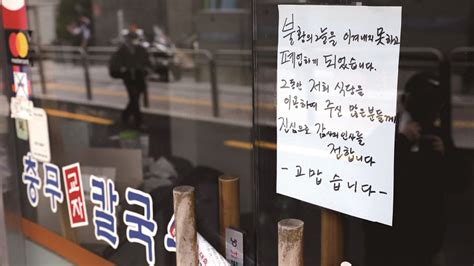 불황의 그늘을 이겨내지 못하고
폐업하게 되었습니다.
그동안 저희 식당을
이용하여 주신 많은 분들께
진심으로 감사의 인사를
전합니다
- 고맙습니다 -
충무교자칼국
mastercard